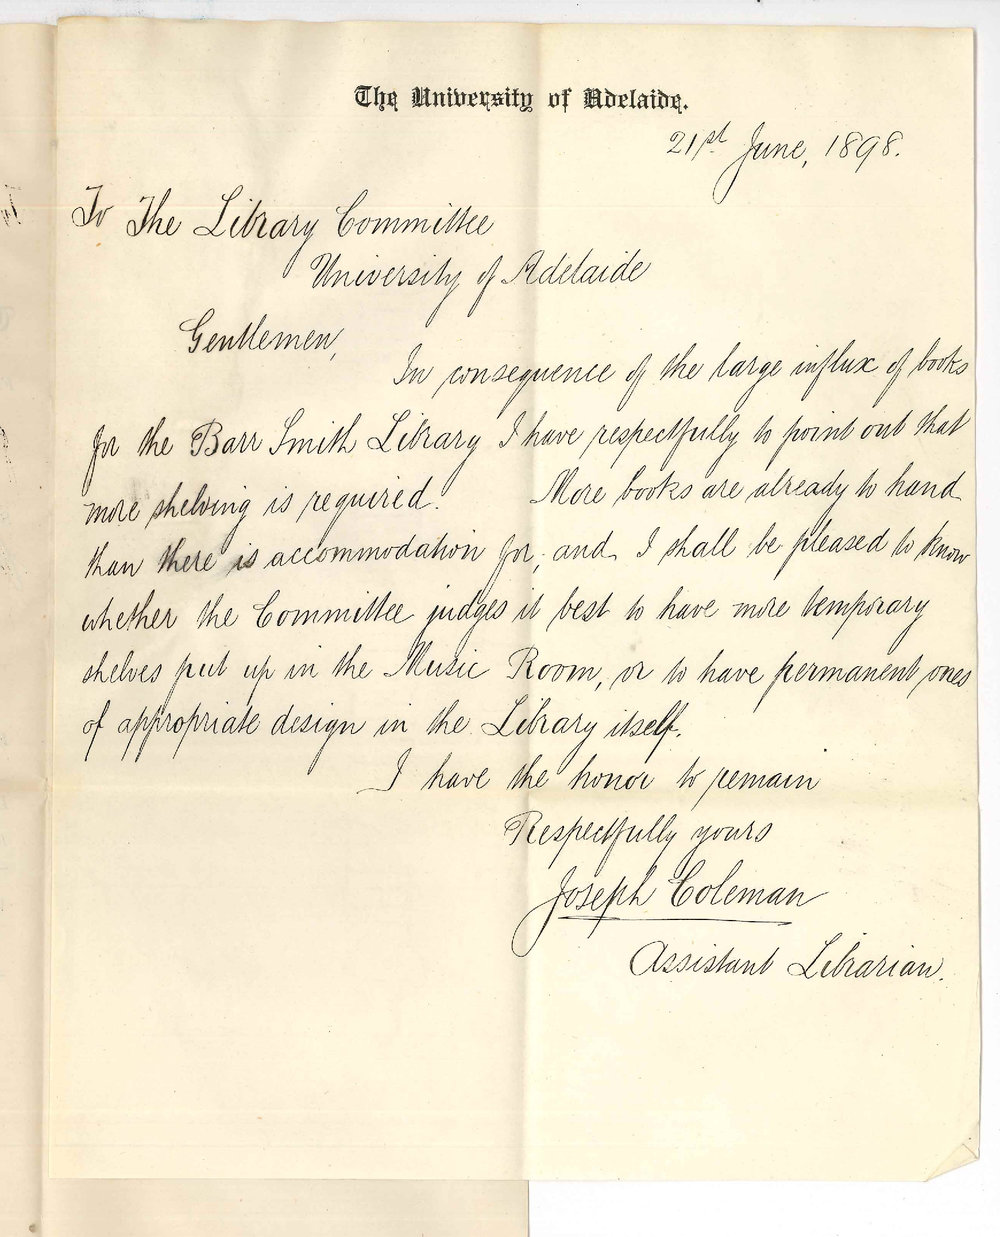 The University of Adelaide.
21st June, 1898.
To The Library Committee
University of Adelaide
Gentlemen,
In consequence of the large influx of books
for the Barr Smith Library I have respectfully to point out that
more shelving is required. More books are already to hand
than there is accommodation for, and I shall be pleased to know
whether the Committee judges it best to have more temporary
shelves put up in the Music Room, or to have permanent ones
of appropriate design in the Library itself.
I have the honor to remain
Respectfully yours
Joseph Coleman
Assistant Librarian.